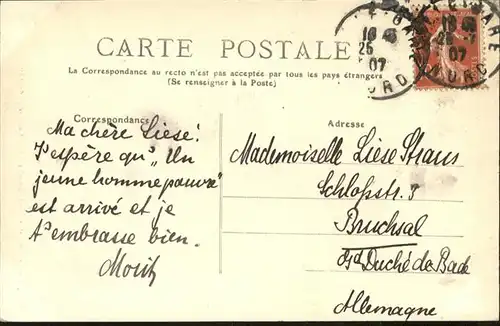 CARTE POSTALE
La Correspondance au recto n'est pas acceptée par tous les pays étrangers
(Se renseigner à la Poste)
Correspondance
Ma chère Liese!
J'espère qu' „Un
jeune homme pauvre"
est arrivé et je
t'embrasse bien.
Moritz
Adresse
Mademoiselle Liese Straus
Schloßstr.
Bruchsal
Gd Duché de Bade
Allemagne
25
07